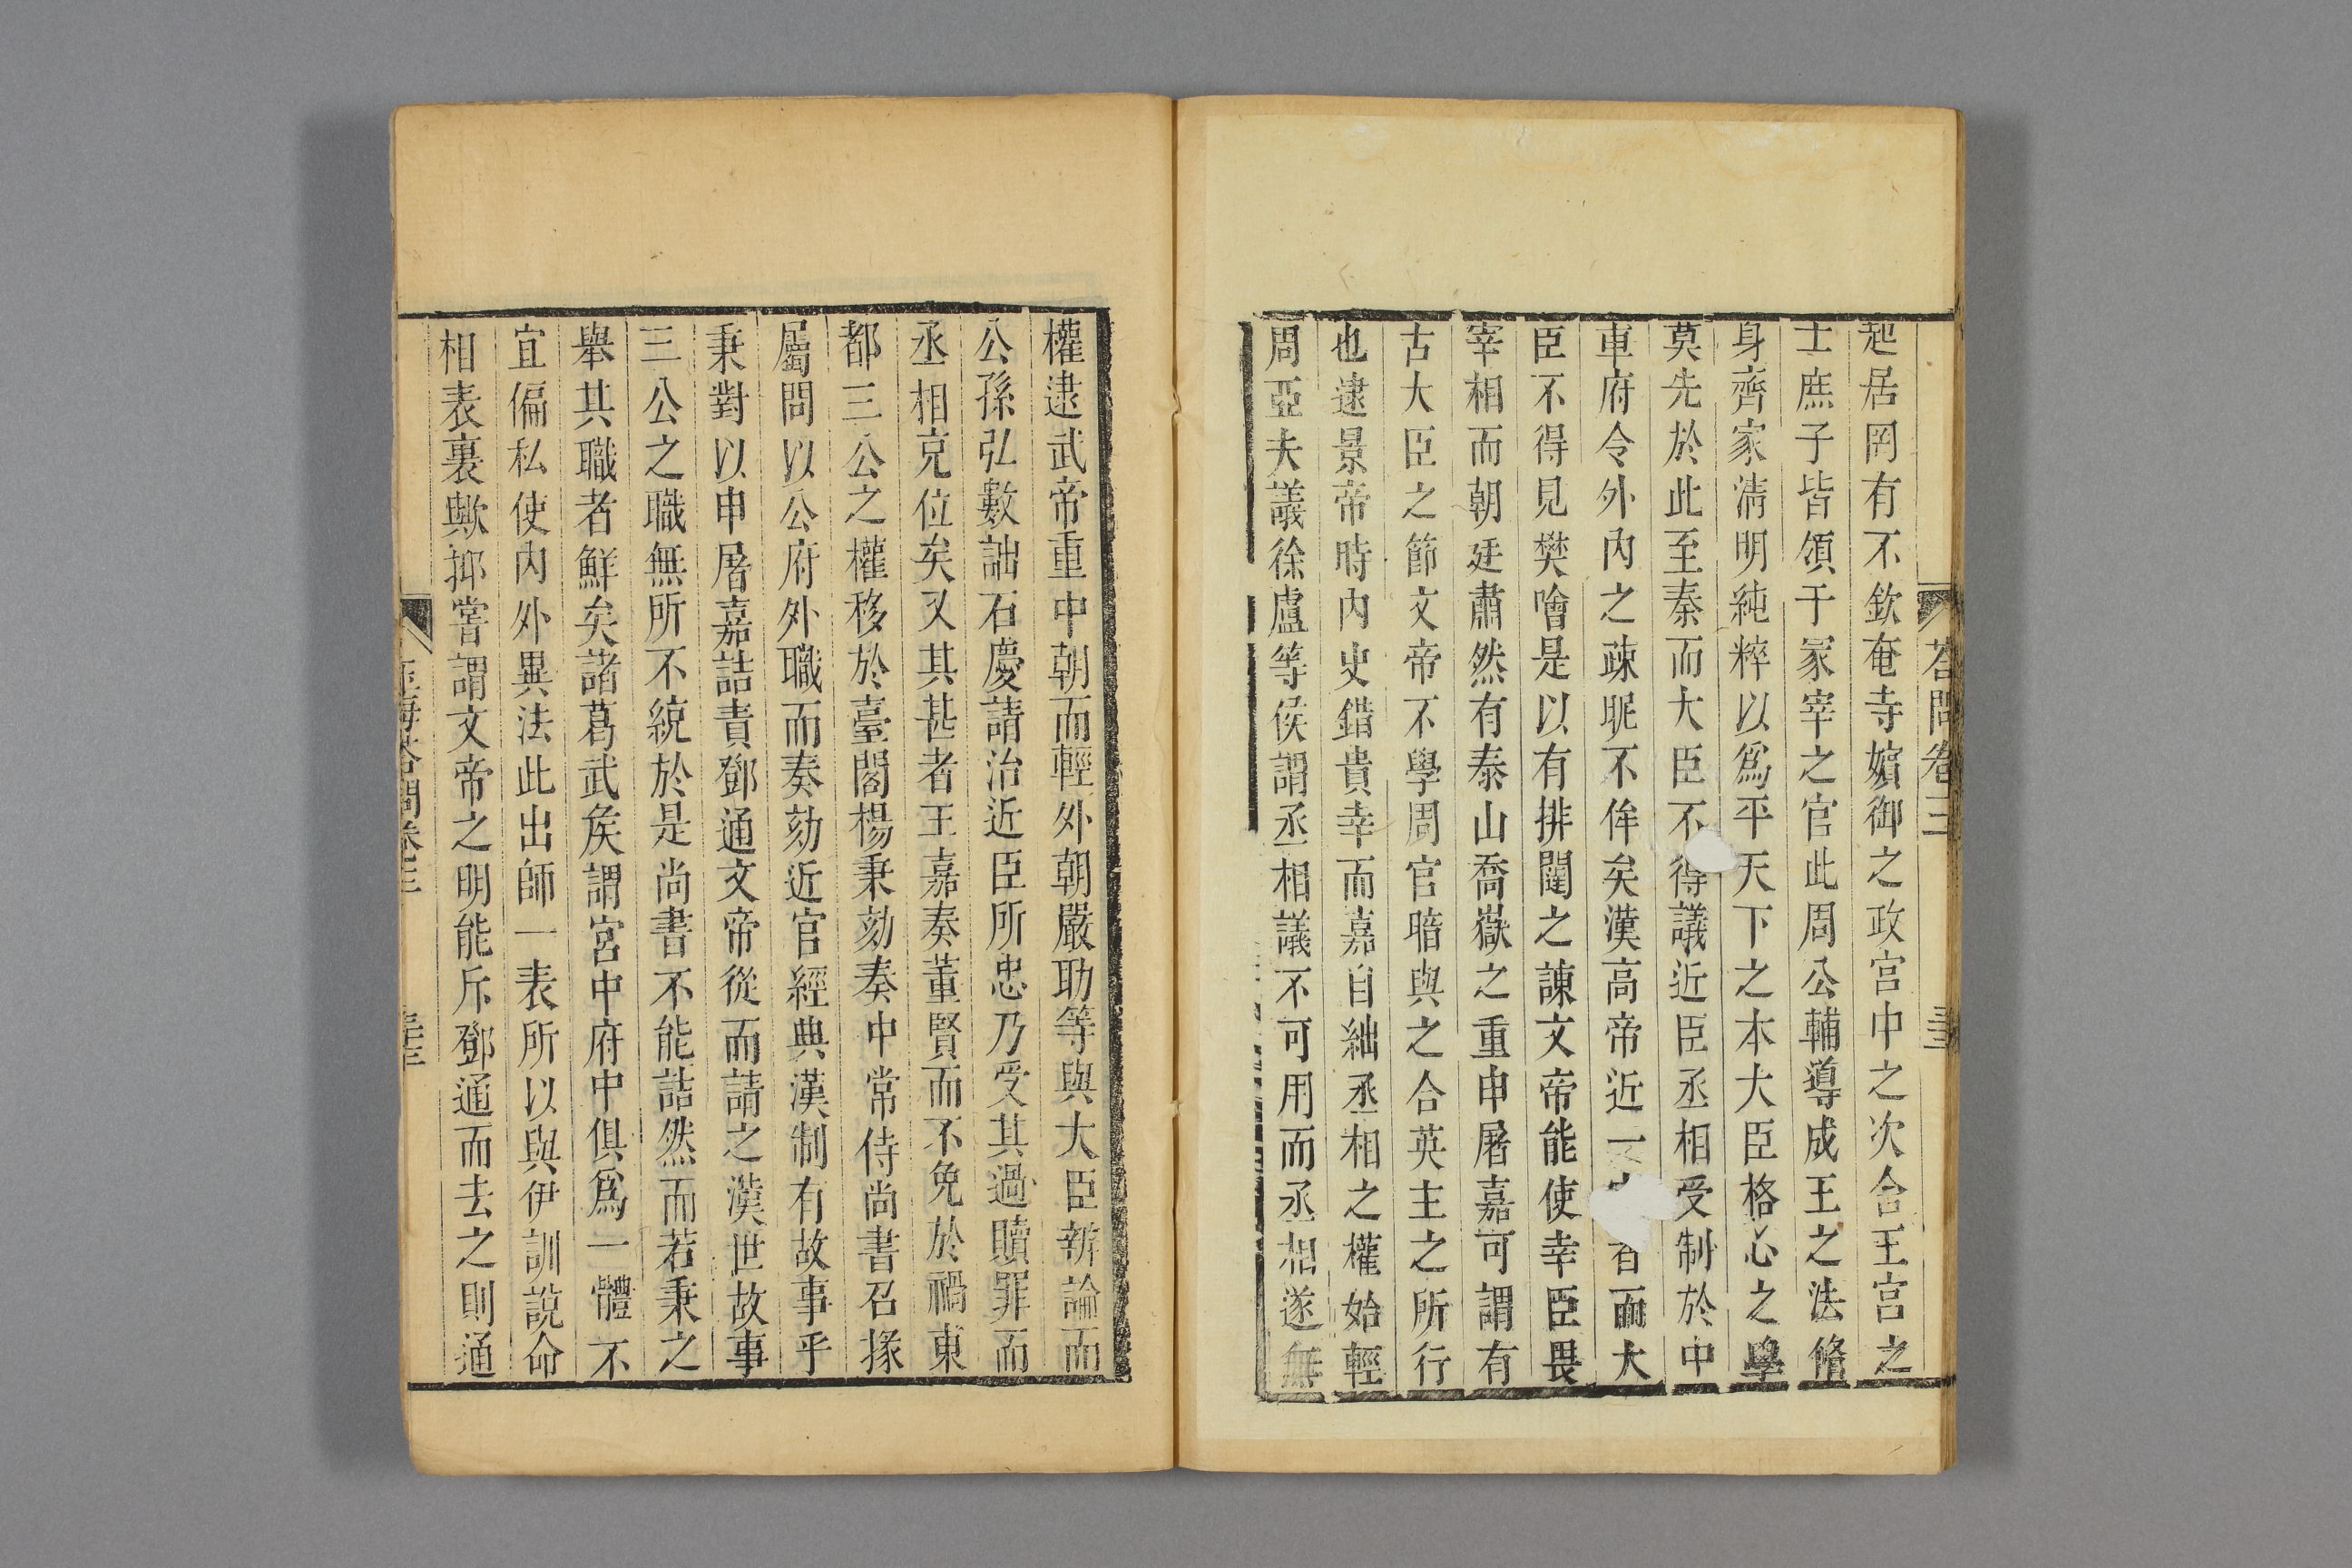 答問卷三
起居罔有不欽奄寺嬪御之政宮中之次舍王宮之
士庶子皆領于冢宰之官此周公輔導成王之法脩
身齊家清明純粹以爲平天下之本大臣格心之學
莫先於此至秦而大臣不得議近臣丞相受制於中
車府令外內之疎昵不侔矣漢高帝近一者而大
臣不得見樊噲是以有排闥之諫文帝能使幸臣畏
宰相而朝廷肅然有泰山喬嶽之重申屠嘉可謂有
古大臣之節文帝不學周官暗與之合英主之所行
也逮景帝時內史錯貴幸而嘉自絀丞相之權始輕
周亞夫議徐盧等侯謂丞相議不可用而丞相遂無
權逮武帝重中朝而輕外朝嚴助等與大臣辨論而
公孫弘數詘石慶請治近臣所忠乃受其過贖罪而
丞相充位矣又其甚者王嘉奏董賢而不免於禍東
都三公之權移於臺閣楊秉劾奏中常侍尚書召掾
屬問以公府外職而奏劾近官經典漢制有故事乎
秉對以申屠嘉詰責鄧通文帝從而請之漢世故事
三公之職無所不統於是尚書不能詰然而若秉之
舉其職者鮮矣諸葛武侯謂宮中府中俱爲一體不
宜偏私使內外異法此出師一表所以與伊訓說命
相表裏歟抑嘗謂文帝之明能斥鄧通而去之則通
玉海答問卷三